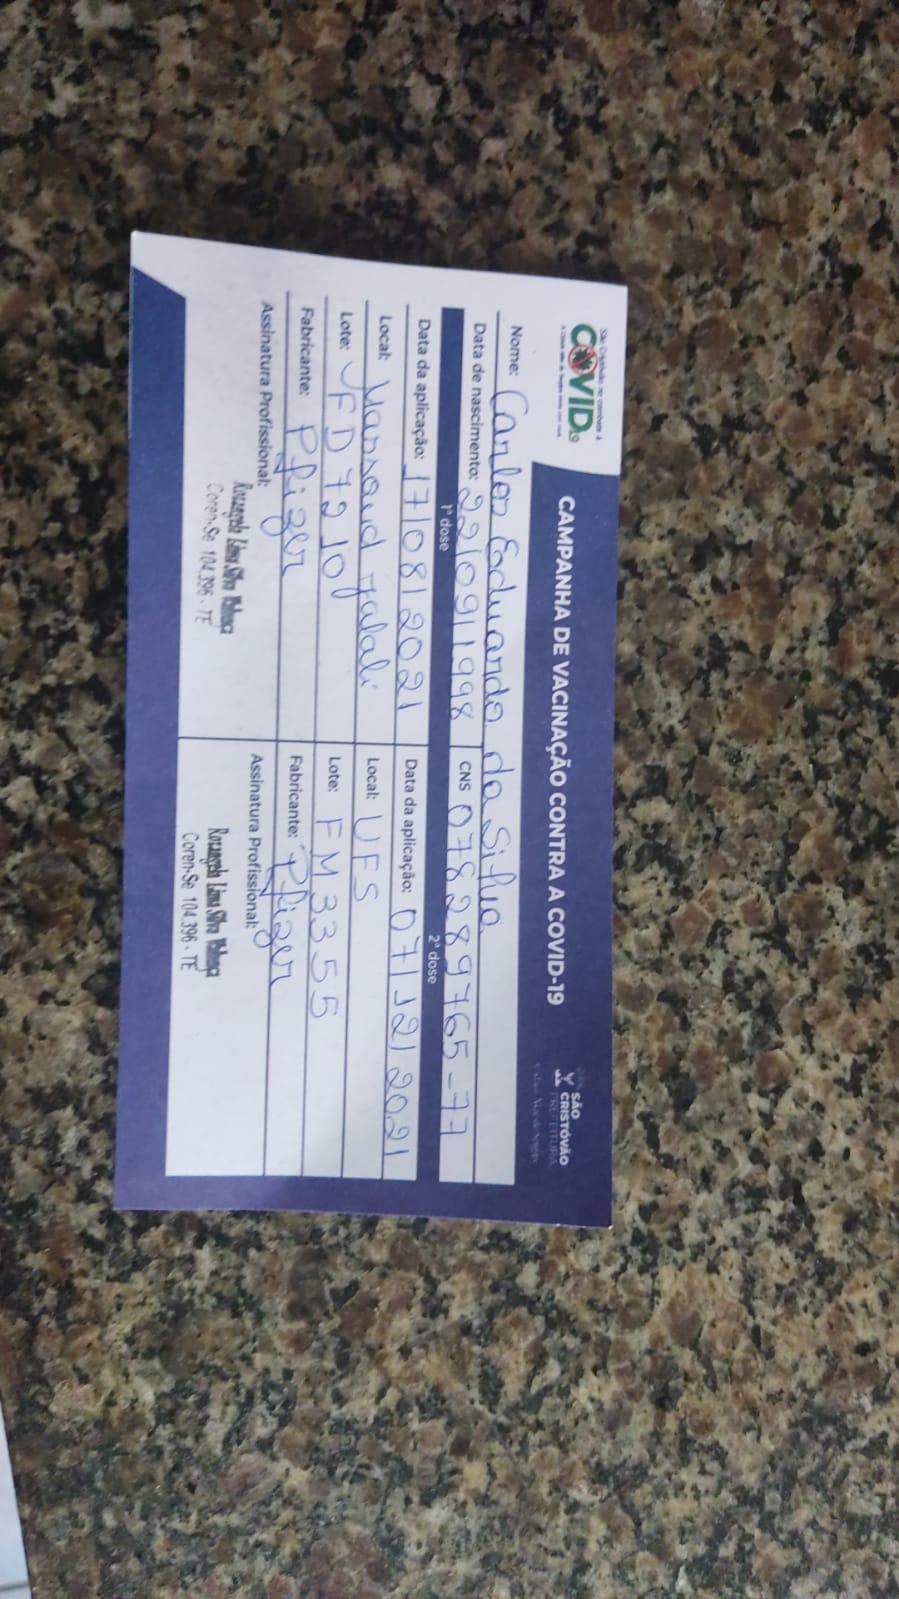 São Cristóvão no combate à
COVID19
CAMPANHA DE VACINAÇÃO CONTRA A COVID-19
SÃO
CRISTÓVÃO
PREFEITURA
Nome: Carlos Eduardo da Silva
Data de nascimento: 22/09/1998 CNS 078289765-77
1ª dose
Data da aplicação: 17/08/2021
Local:
Lote: FD7210
Fabricante: Pfizer
Assinatura Profissional:
Lima Silva
Coren-Se 104.396 - TE
2ª dose
Data da aplicação: 07/12/2021
Local: UFS
Lote: FM3355
Fabricante: Pfizer
Assinatura Profissional:
Lima Silva
Coren-Se 104.396 - TE